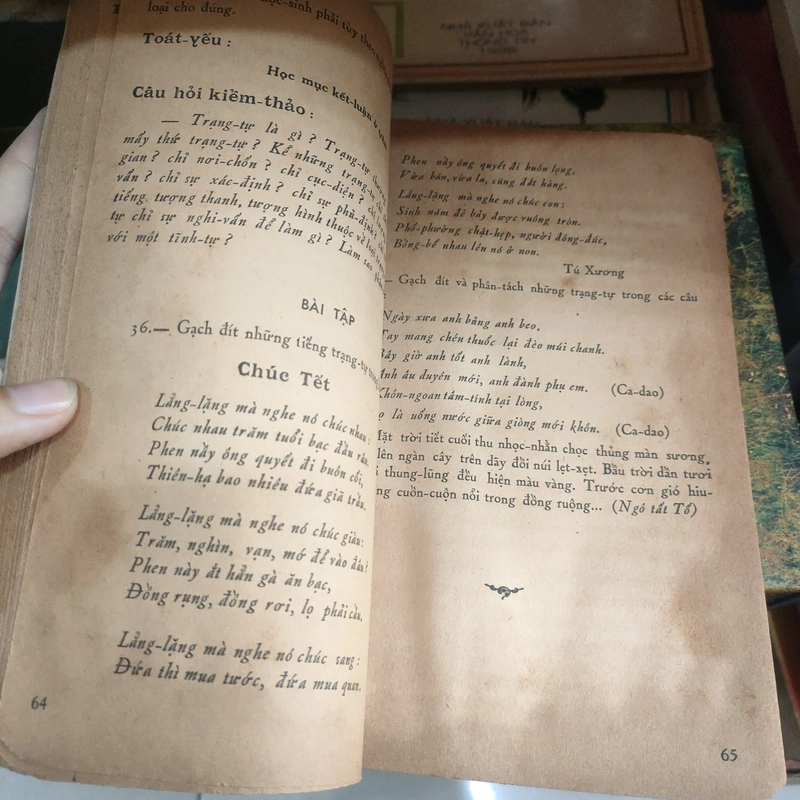 học-sinh phải tùy theo
loại cho đúng.
Toát-yếu :
Học mục kết-luận ở
Câu hỏi kiểm-thảo :
— Trạng-tự là gì ? Trạng-tự
mấy thứ trạng-tự ? Kể những trạng-tự chỉ
gian ? chỉ nơi-chốn ? chỉ cục-diện ? chỉ
vấn ? chỉ sự xác-định ? chỉ sự phủ-định ?
tiếng tượng thanh, tượng hình thuộc về loại
tự chỉ sự nghi-vấn để làm gì ? Làm sao
với một tĩnh-tự ?
BÀI TẬP
36.— Gạch đít những tiếng trạng-tự trong
Chúc Tết
Lẳng-lặng mà nghe nó chúc nhau :
Chúc nhau trăm tuổi bạc đầu râu,
Phen nầy ông quyết đi buôn cối,
Thiên-hạ bao nhiêu đứa giã trầu.
Lẳng-lặng mà nghe nó chúc giàu:
Trăm, nghìn, vạn, mớ để vào đâu ?
Phen này ắt hẳn gà ăn bạc,
Đồng rụng, đồng rơi, lọ phải cầu.
Lẳng-lặng mà nghe nó chúc sang :
Đứa thì mua tước, đứa mua quan.
64
NHÀ XUẤT BẢN
VĂN HÓA
THÔNG TIN
Phen nầy ông quyết đi buôn lọng,
Vừa bán, vừa la, cũng đắt hàng.
Lẳng-lặng mà nghe nó chúc con :
Sinh năm đẻ bảy được vuông tròn.
Phố-phường chật-hẹp, người đông-đúc,
Bồng-bế nhau lên nó ở non.
Tú Xương
— Gạch đít và phân-tách những trạng-tự trong các câu
Ngày xưa anh bủng anh beo.
Tay mang chén thuốc lại đèo múi chanh.
Bây giờ anh tốt anh lành,
Anh âu duyên mới, anh đành phụ em. (Ca-dao)
Khôn-ngoan tâm-tính tại lòng,
ọ là uống nước giữa giòng mới khôn. (Ca-dao)
Mặt trời tiết cuối thu nhọc-nhằn chọc thủng màn sương,
lên ngàn cây trên dãy đồi núi lẹt-xẹt. Bầu trời dần tươi
thung-lũng đều hiện màu vàng. Trước cơn gió hiu-
cuồn-cuộn nổi trong đồng ruộng... (Ngô tất Tố)
65